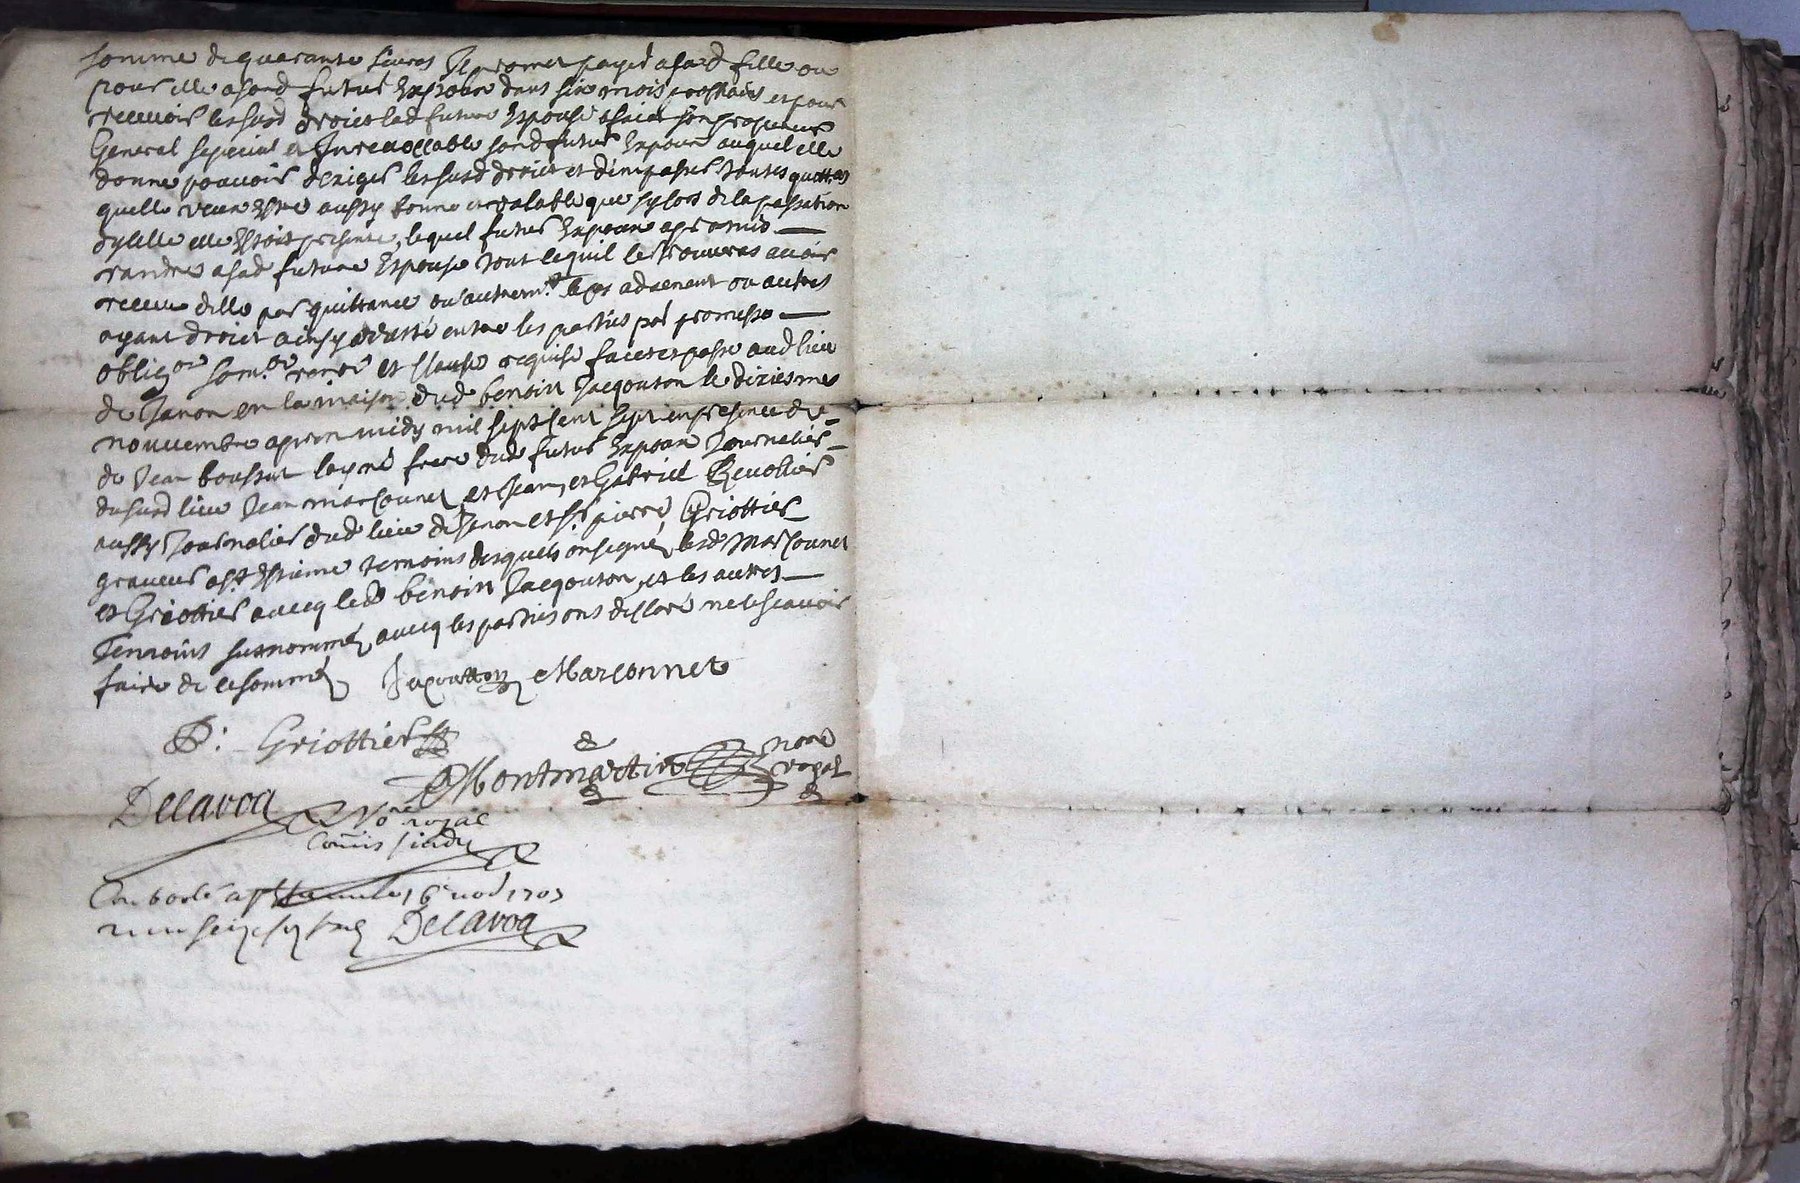 somme de quarante livres Il promet payer a sad fille ou
pour elle a sond futur Espoux dans six mois prochains et pour
recevoir lessusd droicts lad future Espouse a faict son procureur
General special et Inrevoccable sond futur Espoux auquel elle
donne pouvoir d'exiger lessusd droict et d'en passer toutes quittances
quelle veux Estre aussy bonne et valable que sy lors de la passation
dycelle elle Estoit presente, lequel futur Espoux a promis
randre a sad future Espouse tout lequil se trouveras avoir
receu delle par quittance ou autremt le cas advenent ou autres
ayant droict ainsy aresté entre les parties par promesse
obligon som.on renon et clause requise faict et passé aud lieu
de Janon en la maison dud benoist Jacqouton le dixiesme
nouvembre apres midy mil sept cent sept en presence de
de Jean boussut layné frere dud futur Espoux Journalier
dususd lieu Jean marconnet et Jean, et Gabriel Revollier
aussy Journalier dud lieu de Janon et sr pierre Griottier
graveur a st Estienne temoins desquels on signé lesd Marconnet
et Griottier avecq led benoist Jacqouton, et les autres
Temoins susnommé avecq les parties ont desclaré ne le scavoir
faire de ce sommé Jaquotton Marconnet
P: Griottier
Montmartin nore
royal
Delavoa No.re royal
Commis
a st 16 nov 1707
Delavoa